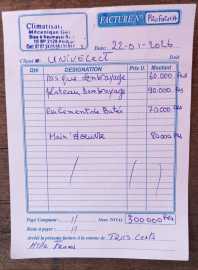 Climatisat.
Mécanique Géné.
FACTURE N° Proforma
Date: 22-01-2026
Client M: UNIVERLECT Doit
Qté DÉSIGNATION Prix U. Montant
Disque d'embrayage 60.000 frs
plateau d'embrayage 90.000 frs
Roulement de Butée 70.000 frs
Main d'œuvre 80.000 frs
Paye Comptant // Net TOTAL 300000 Frs
Reste à devoir //
Arrêté la présente facture à la somme de Trois Cents
Mille Francs